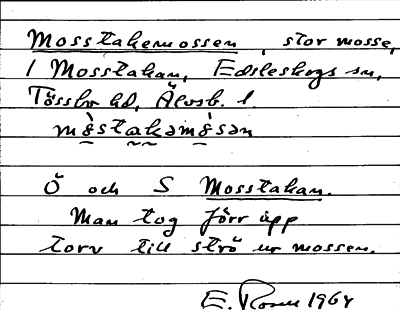 Mosstakemossen, stor mosse,
i Mosstakan, Edsleskogs sn,
Tössbo hd, Älvsb. l.
mòstakəmòsən
Ö och S Mosstakan.
Man tog förr upp
torv till strö ur mossen.
E. Rosen 1964